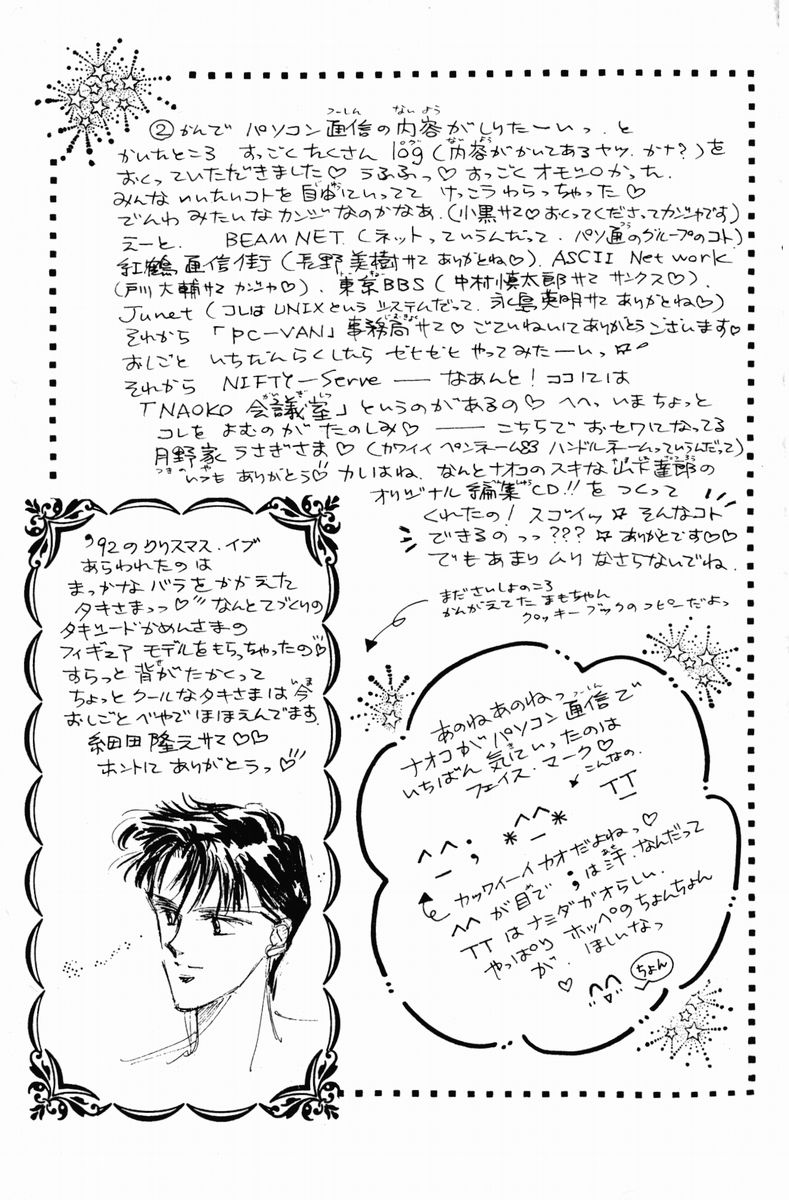 ②かんで パソコン通信の内容がしりたーいっ.と
つーしん ないよう
かいたところ すっごくたくさん log(内容がかいてあるヤツ.かナ?)を
ログ ないよう
おくっていただきました♡ うふふっ♡ すっごくオモシロかった.
みんな いいたいコトを自由にいってて けっこうわらっちゃった♡
でんわ みたいなカンジなのかなあ.(小黒サマ♡おくってくださってカンシャです)
えーと. BEAM NET.(ネットっていうんだって.パソ通のグループのコト)
紅鶴通信街(長野美樹サマ ありがとね♡). ASCII Net work
(戸川大輔サマ カンシャ♡). 東京BBS(中村慎太郎サマ サンクス♡).
Junet(コレはUNIXという システムだって. 永島英明サマ ありがとね♡)
それから 「PC-VAN」事務局サマ♡ ごていねいにありがとうございます♡
おしごと いちだんらくしたら ゼヒゼヒ やってみたーいっ☆
それから NIFTY-Serve ── なあんと! ココには
「NAOKO 会議室」というのがあるの♡ へへっ いまちょっと
かいぎしつ
コレをよむのがたのしみ♡ ── こちらでおセワになってる
月野家うさぎさま♡(カワイイ ペンネーム!! ハンドルネームっていうんだって)
つきのや
いつも ありがとう♡ カレはね. なんとナオコのスキな 山下達郎の
オリジナル 編集CD!!を つくって
くれたの! スゴイっ☆ そんなコト
できるのっっ??? ☆ ありがとです♡♡
でも あまり ムリ なさらないでね.
まださいしょのころ
かんがえてた まもちゃん
クロッキーブックのコピーだよっ
'92のクリスマス.イブ
あらわれたのは
まっかな バラをかかえた
タキさまっっ♡ なんとてづくりの
タキシードかめんさまの
フィギュア モデルをもらっちゃったの♡
すらっと 背がたかくって
ちょっとクールなタキさまは 今
いま
おしごとべやでほほえんでます.
細田隆之サマ♡♡
ホントに ありがとうっ♡
あのねあのねっ
ナオコがパソコン通信で
つーしん
いちばん 気にいったのは
フェイス.マーク♡
こんなの.
T_T
^_^; *^_^*
カッワイーイ カオだよねっ♡
^^が目で ;は汗.なんだって
TTはナミダガオらしい.
やっぱり ホッペのちょんちょん
が. ほしいなっ
♡
ちょん